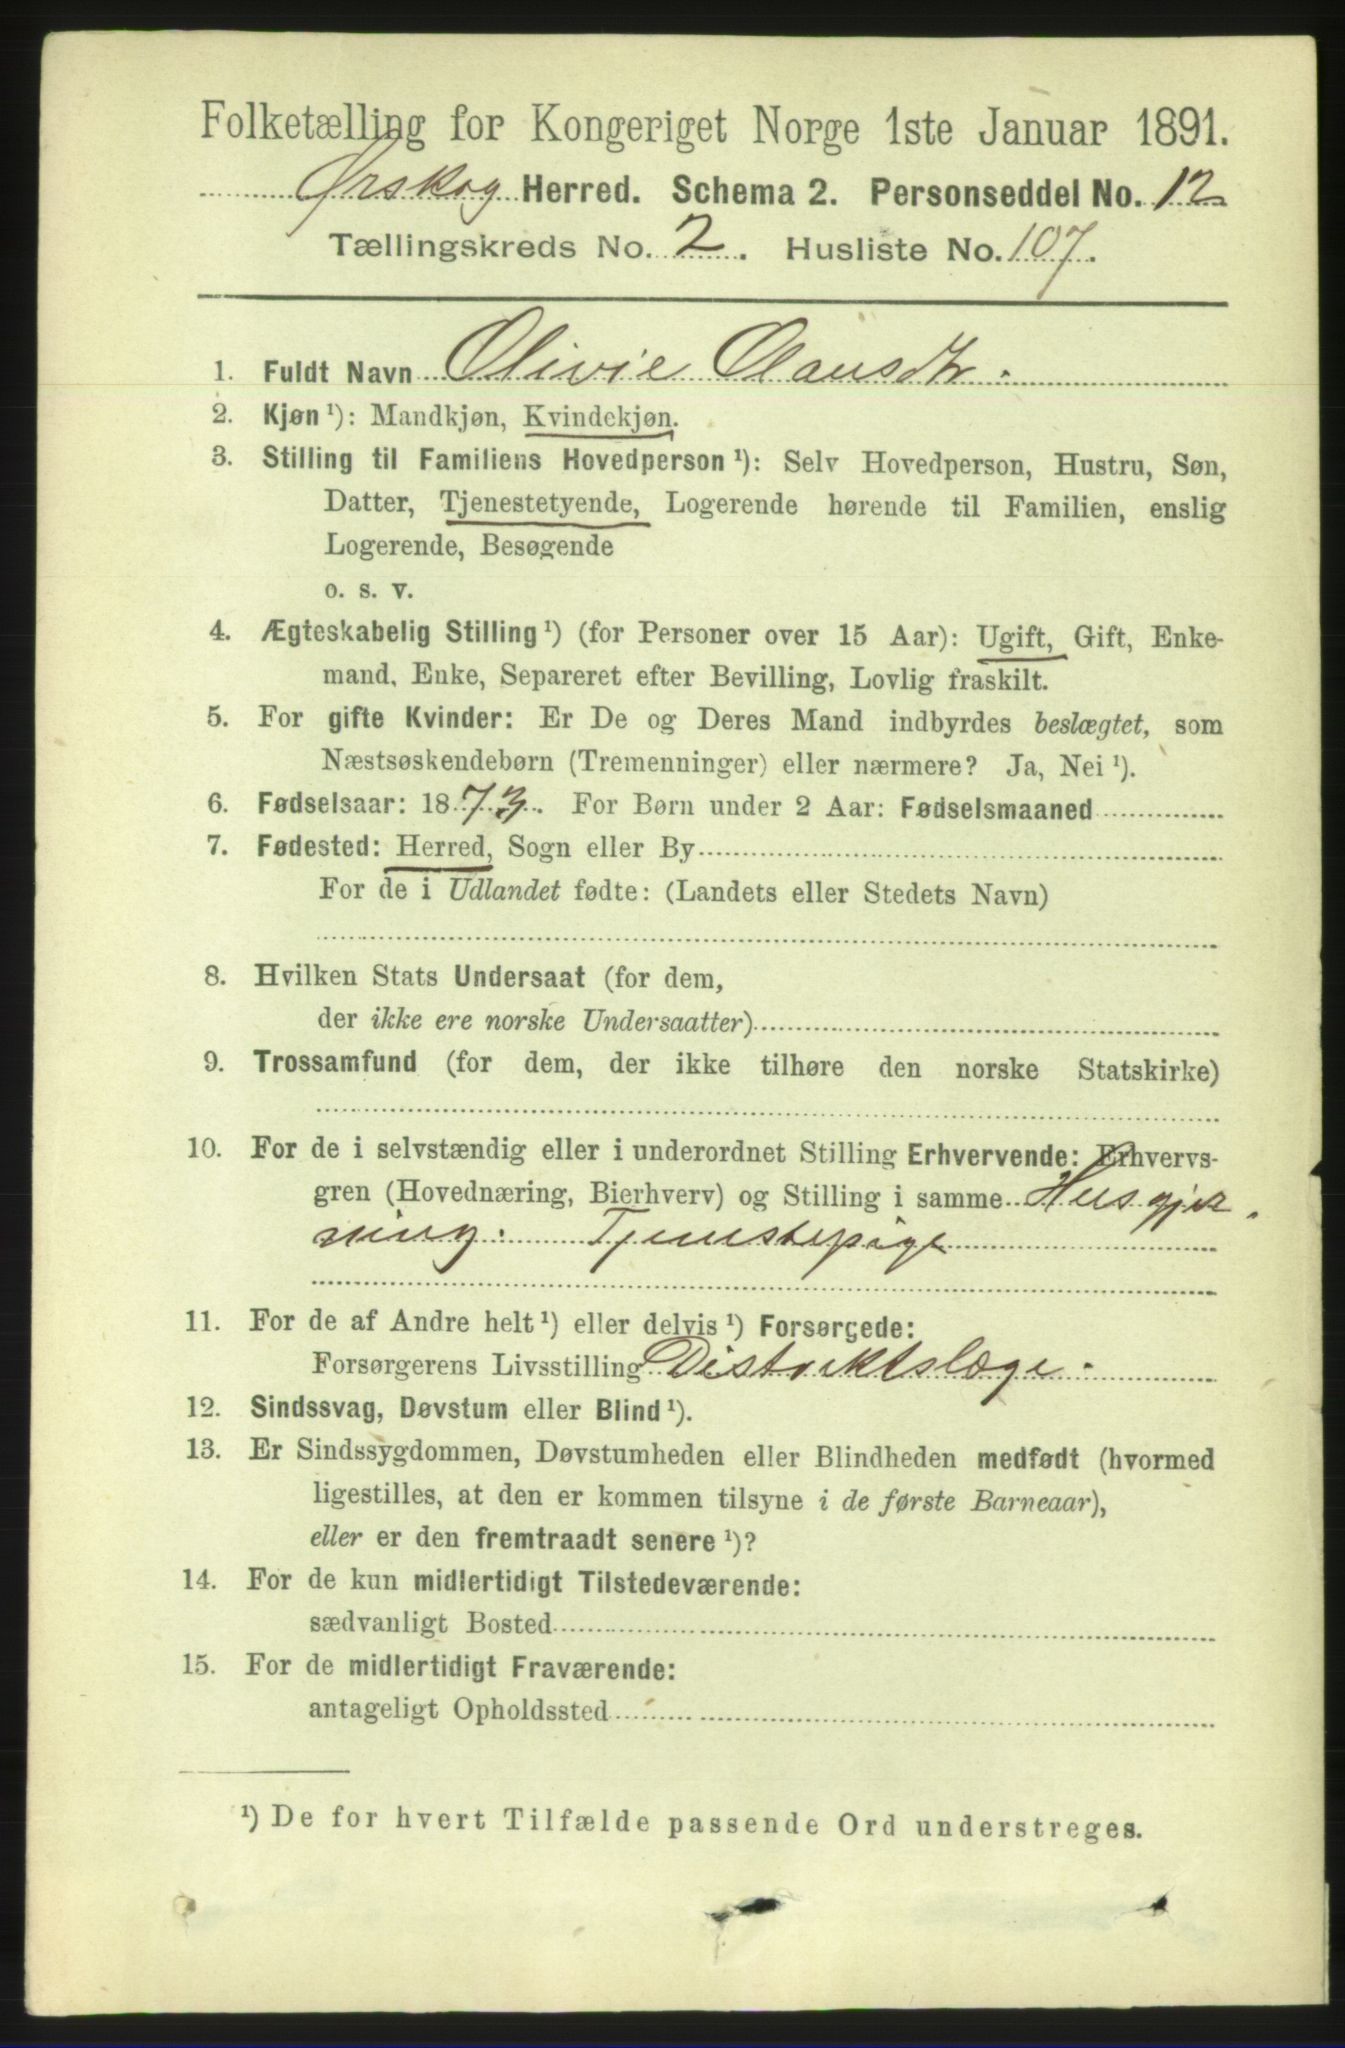 Folketælling for Kongeriget Norge 1ste Januar 1891.
Ørskog Herred. Schema 2. Personseddel No. 12
Tællingskreds No. 2. Husliste No. 107.
1. Fuldt Navn Olivie Olausdtr.
2. Kjøn ¹): Mandkjøn, Kvindekjøn.
3. Stilling til Familiens Hovedperson ¹): Selv Hovedperson, Hustru, Søn,
Datter, Tjenestetyende, Logerende hørende til Familien, enslig
Logerende, Besøgende
o. s. v.
4. Ægteskabelig Stilling ¹) (for Personer over 15 Aar): Ugift, Gift, Enke-
mand, Enke, Separeret efter Bevilling, Lovlig fraskilt.
5. For gifte Kvinder: Er De og Deres Mand indbyrdes beslægtet, som
Næstsøskendebørn (Tremenninger) eller nærmere? Ja, Nei ¹).
6. Fødselsaar: 1873. For Børn under 2 Aar: Fødselsmaaned
7. Fødested: Herred, Sogn eller By
For de i Udlandet fødte: (Landets eller Stedets Navn)
8. Hvilken Stats Undersaat (for dem,
der ikke ere norske Undersaatter)
9. Trossamfund (for dem, der ikke tilhøre den norske Statskirke)
10. For de i selvstændig eller i underordnet Stilling Erhvervende: Erhvervs-
gren (Hovednæring, Bierhverv) og Stilling i samme Husgjer
ning. Tjenestepige
11. For de af Andre helt ¹) eller delvis ¹) Forsørgede:
Forsørgerens Livsstilling Distriktslæge.
12. Sindssvag, Døvstum eller Blind ¹).
13. Er Sindssygdommen, Døvstumheden eller Blindheden medfødt (hvormed
ligestilles, at den er kommen tilsyne i de første Barneaar),
eller er den fremtraadt senere ¹)?
14. For de kun midlertidigt Tilstedeværende:
sædvanligt Bosted
15. For de midlertidigt Fraværende:
antageligt Opholdssted
¹) De for hvert Tilfælde passende Ord understreges.